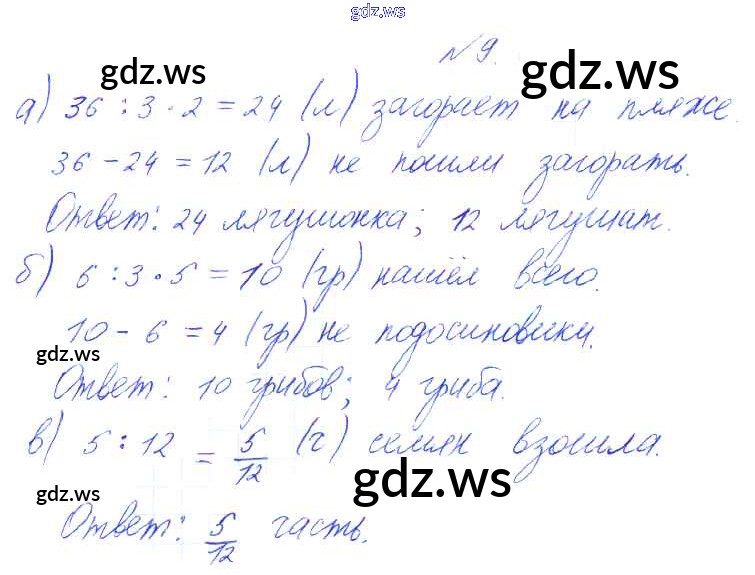 gdz.ws
№ 9.
gdz.ws gdz.ws
а) 36 : 3 · 2 = 24 (л) загорает на пляже.
36 - 24 = 12 (л) не пошли загорать.
Ответ: 24 лягушонка; 12 лягушат.
б) 6 : 3 · 5 = 10 (гр) нашёл всего.
10 - 6 = 4 (гр) не подосиновики.
gdz.ws gdz.ws
Ответ: 10 грибов; 4 гриба.
в) 5 : 12 = 5/12 (ч) семян взошла.
gdz.ws gdz.ws
Ответ: 5/12 часть.